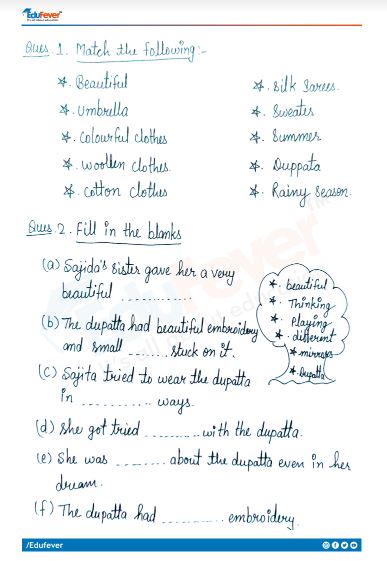 Edufever
Ques. 1. Match the following:-
☆. Beautiful
☆. Silk Sarees.
☆. Umbrella
☆. Sweater
☆. Colourful clothes
☆. Summer
☆. Woollen clothes.
☆. Duppata
☆. Cotton clothes
☆. Rainy Season.
Ques. 2. Fill in the blanks
(a) Sajida's sister gave her a very
beautiful ...........
(b) The dupatta had beautiful embroidery
and small ........ stuck on it.
(c) Sajita tried to wear the dupatta
in ........... ways.
(d) She got tried ......... with the dupatta.
(e) She was ........ about the dupatta even in her
dream.
(f) The dupatta had .......... embroidery.
★. beautiful
★. Thinking
★. Playing
★. different
★ mirrors
★. Dupatta
/Edufever